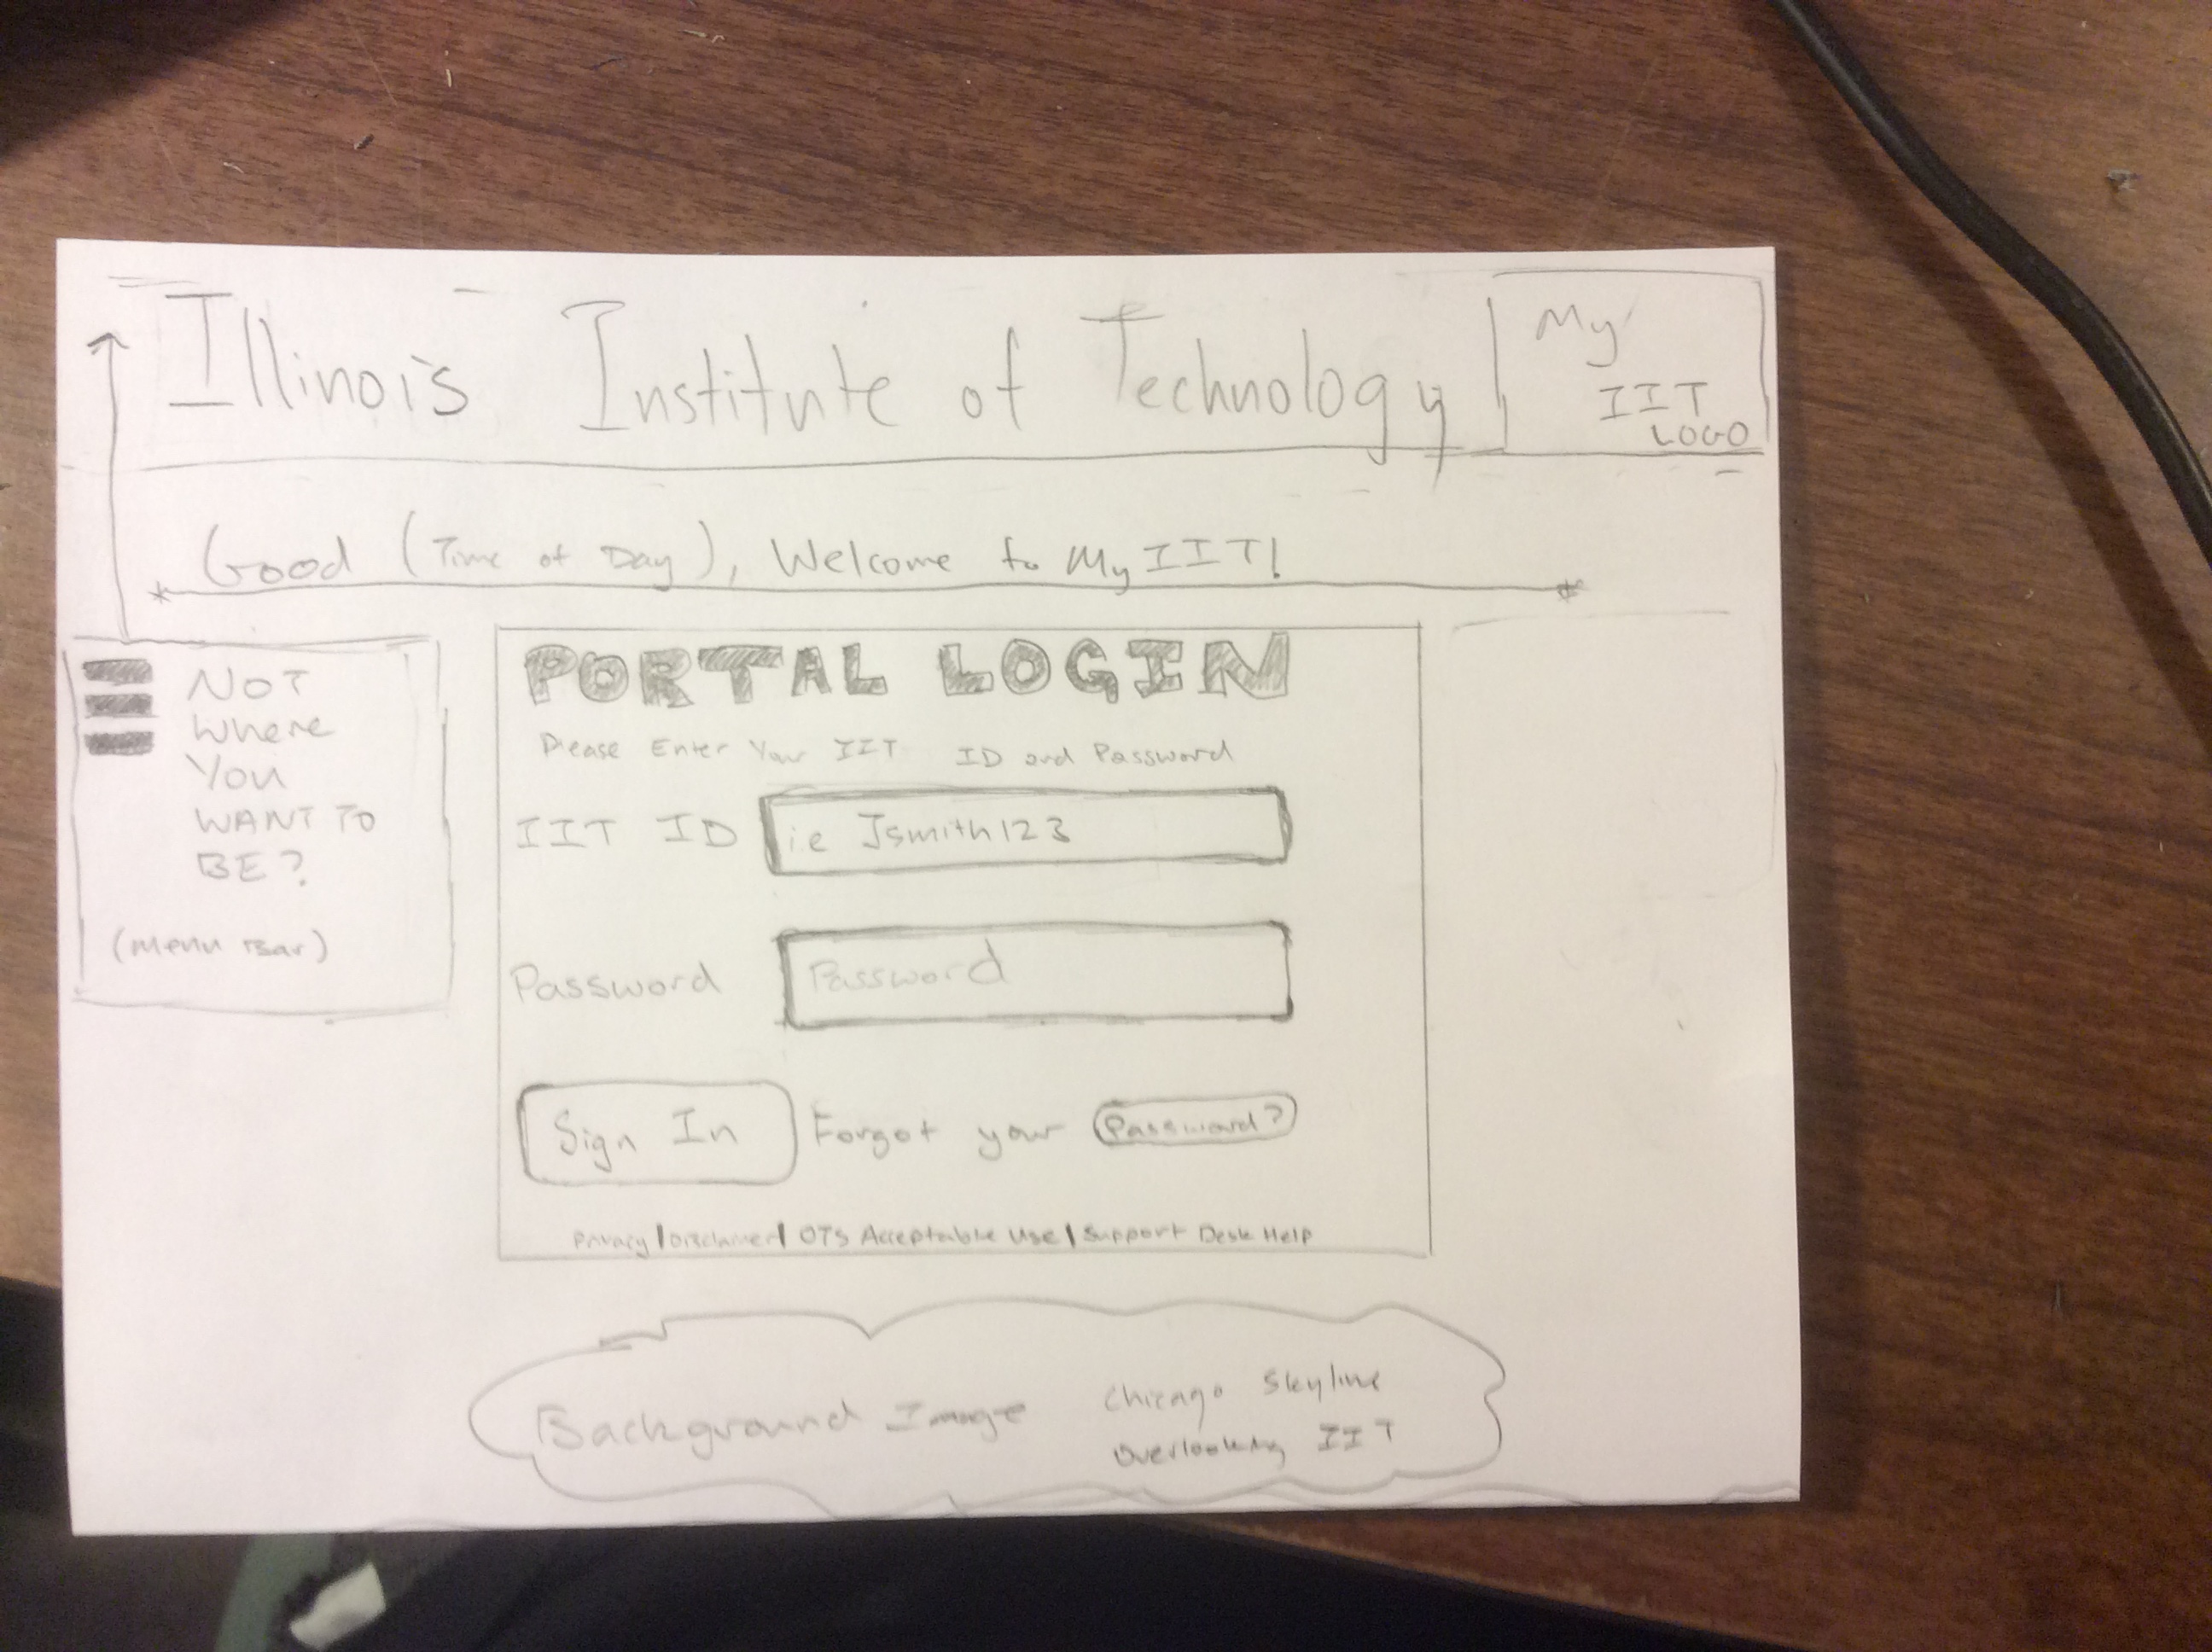 Illinois Institute of Technology
My
IIT
LOGO
Good (Time of Day), Welcome to My IIT!
NOT
Where
You
WANT TO
BE?
(Menu Bar)
PORTAL LOGIN
Please Enter Your IIT ID and Password
IIT ID
i.e Jsmith123
Password
Password
Sign In
Forgot your Password?
Privacy | Disclaimer | OTS Acceptable Use | Support Desk Help
Background Image
Chicago Skyline
Overlooking IIT